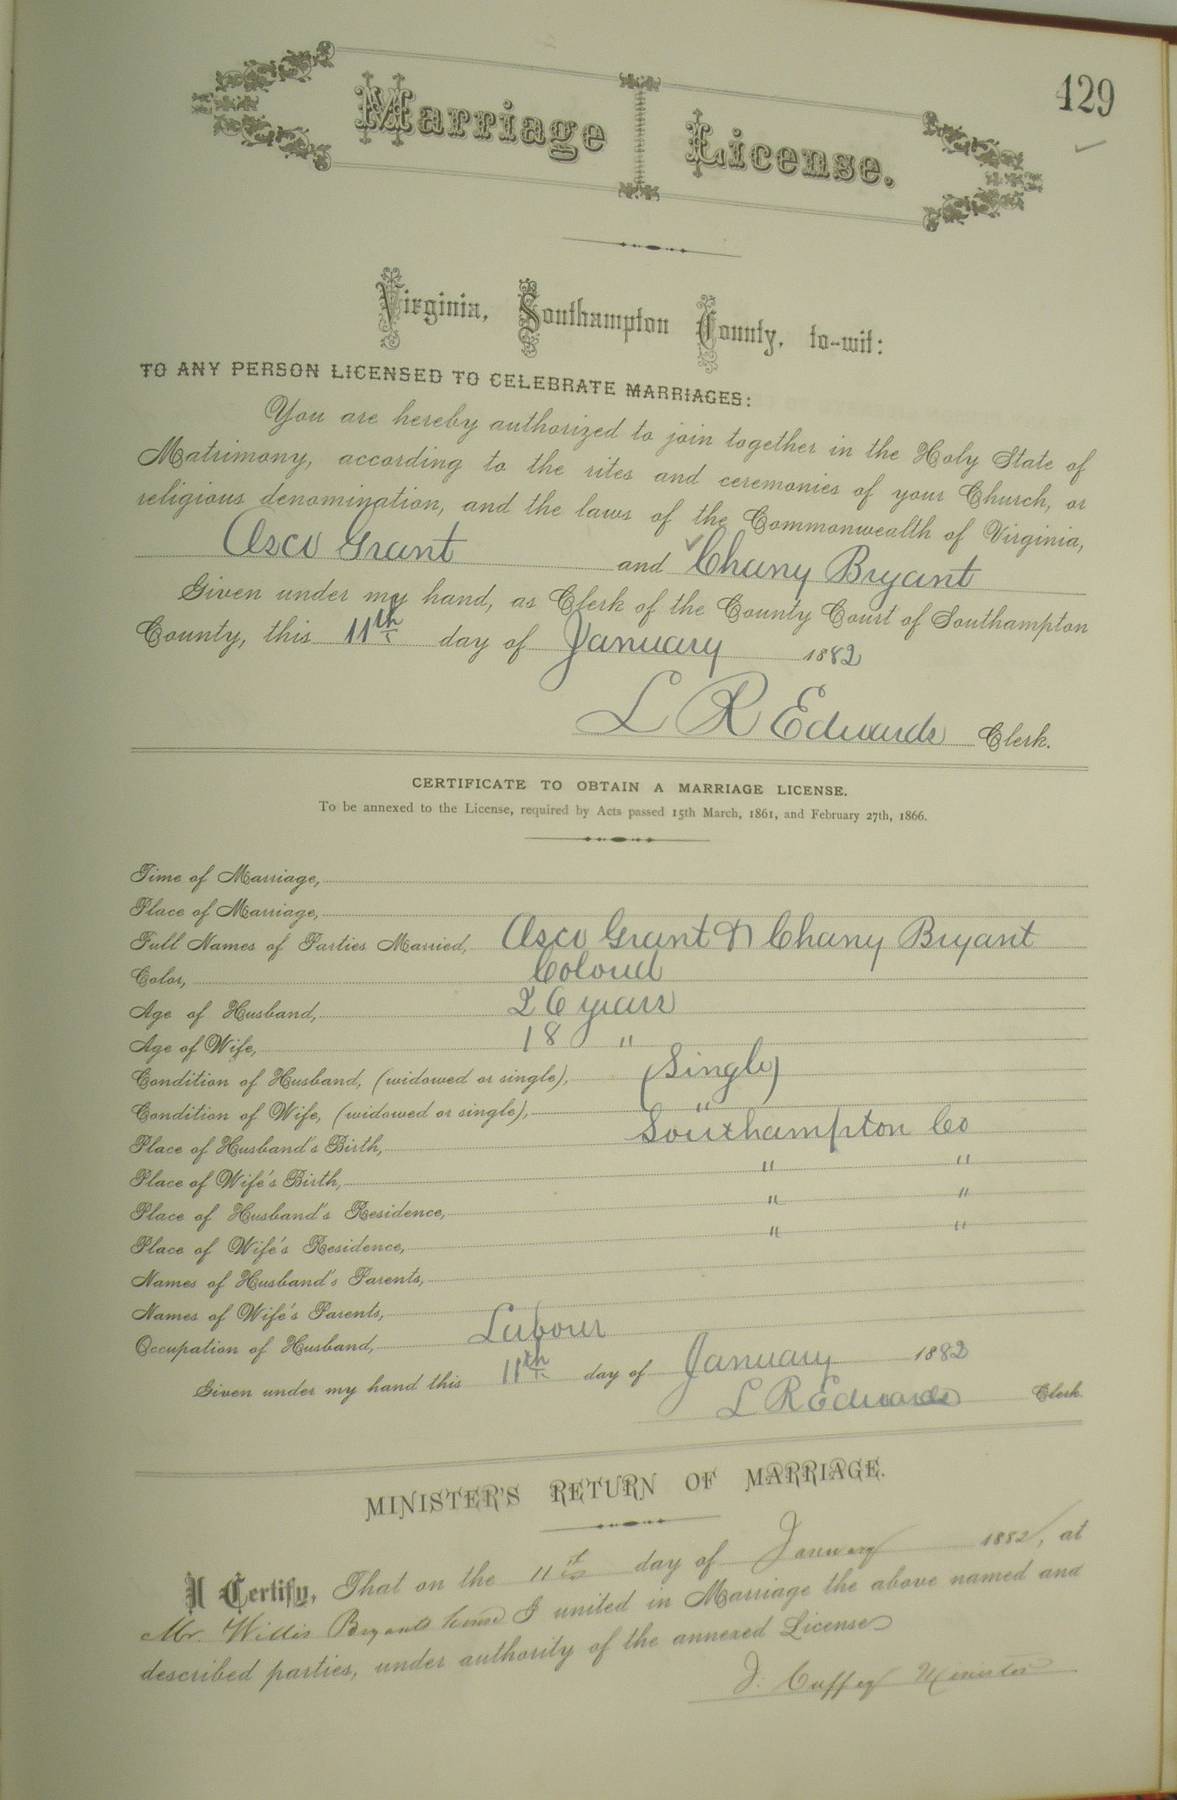 129
Marriage License.
Virginia, Southampton County, to-wit:
TO ANY PERSON LICENSED TO CELEBRATE MARRIAGES:
You are hereby authorized to join together in the Holy State of
Matrimony, according to the rites and ceremonies of your Church, or
religious denomination, and the laws of the Commonwealth of Virginia,
Asco Grant and Chany Bryant
Given under my hand, as Clerk of the County Court of Southampton
County, this 11th day of January 1882
L R Edwards Clerk.
CERTIFICATE TO OBTAIN A MARRIAGE LICENSE.
To be annexed to the License, required by Acts passed 15th March, 1861, and February 27th, 1866.
Time of Marriage,
Place of Marriage,
Full Names of Parties Married, Asco Grant & Chany Bryant
Color, Colored
Age of Husband, 26 years
Age of Wife, 18 "
Condition of Husband, (widowed or single), (Single)
Condition of Wife, (widowed or single), "
Place of Husband's Birth, Southampton Co
Place of Wife's Birth, " "
Place of Husband's Residence, " "
Place of Wife's Residence, " "
Names of Husband's Parents,
Names of Wife's Parents,
Occupation of Husband, Labour
Given under my hand this 11th day of January 1882
L R Edwards Clerk.
MINISTER'S RETURN OF MARRIAGE.
I Certify, That on the 11 day of January 1882, at
Mr. Willis Bryants house I united in Marriage the above named and
described parties, under authority of the annexed License
J. Cuffey Minister